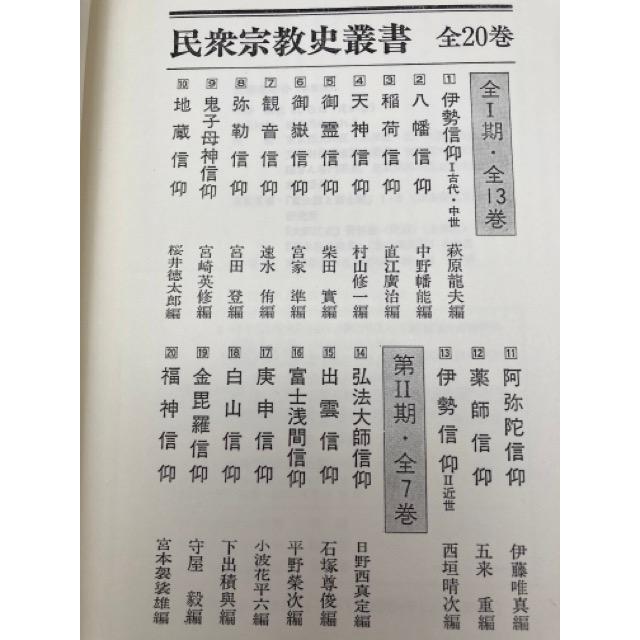 民衆宗教史叢書 全20巻
全Ⅰ期・全13巻
1 伊勢信仰Ⅰ古代・中世 萩原龍夫編
2 八幡信仰 中野幡能編
3 稲荷信仰 直江廣治編
4 天神信仰 村山修一編
5 御霊信仰 柴田實編
6 御嶽信仰 宮家準編
7 観音信仰 速水侑編
8 弥勒信仰 宮田登編
9 鬼子母神信仰 宮崎英修編
10 地蔵信仰 桜井徳太郎編
11 阿弥陀信仰 伊藤唯真編
12 薬師信仰 五来重編
13 伊勢信仰Ⅱ近世 西垣晴次編
第Ⅱ期・全7巻
14 弘法大師信仰 日野西真定編
15 出雲信仰 石塚尊俊編
16 富士浅間信仰 平野榮次編
17 庚申信仰 小花波平六編
18 白山信仰 下出積與編
19 金毘羅信仰 守屋毅編
20 福神信仰 宮本袈裟雄編